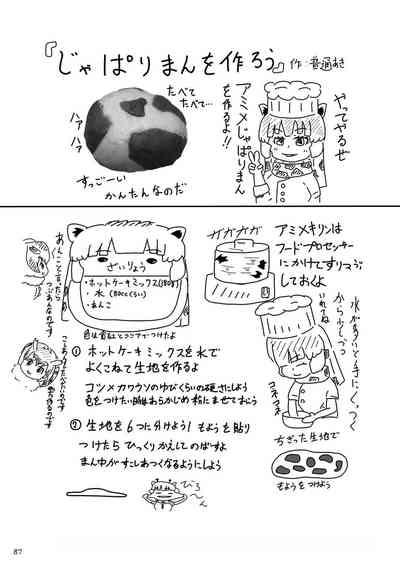 『じゃぱりまんを作ろう』
作:普通あき
たべて
たべて…
ハァ
ハァ
すっごーい
かんたんなのだ
やってやるぜ
アミメじゃぱりまん
を作るよ!!
ざいりょう
・ホットケーキミックス(180g)
・水(80ccくらい)
・あんこ
あんこと言ったら
つぶあんなのです
ガガガガ
アミメキリンは
フードプロセッサー
にかけてすりつぶ
しておくよ
① ホットケーキミックスを水で
よくこねて生地を作るよ
コツメカワウソのゆびくらいの硬さにしよう
色をつけたい時はあらかじめ粉にまぜておこう
水があると手にくっつく
から少しづつ
いれてね
コネコネ
② 生地を6つに分けよう!もようを貼り
つけたらひっくりかえしてのばすよ
まん中がすこしあつくなるようにしよう
びろーん
ちぎった生地で
もようをつけよう
87